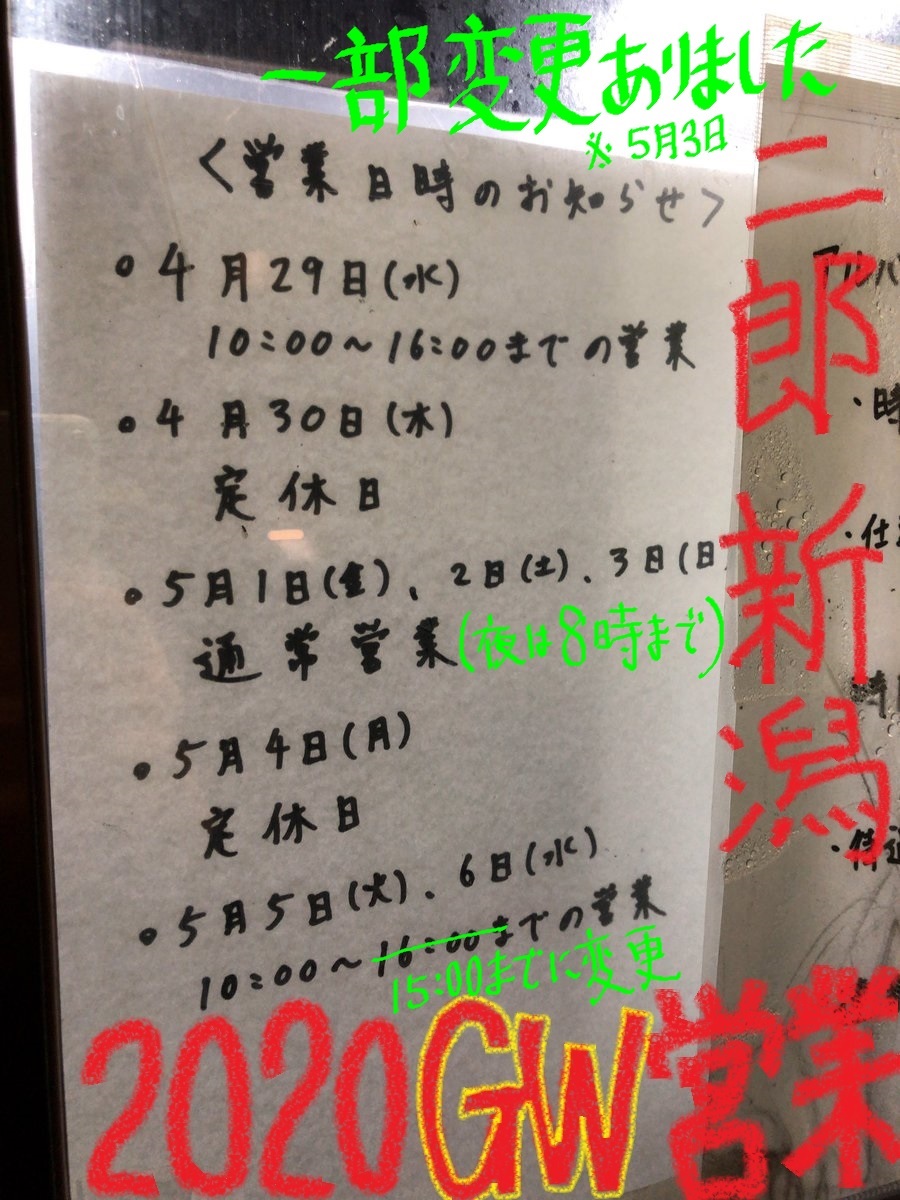 一部変更ありました
※5月3日
<営業日時のお知らせ>
・4月29日(水)
10:00~16:00までの営業
・4月30日(木)
定休日
・5月1日(金)、2日(土)、3日(日
通常営業(夜は8時まで)
・5月4日(月)
定休日
・5月5日(火)、6日(水)
10:00~16:00までの営業
15:00までに変更
二郎新潟
2020GW営業
・時
・仕
時
・待遇